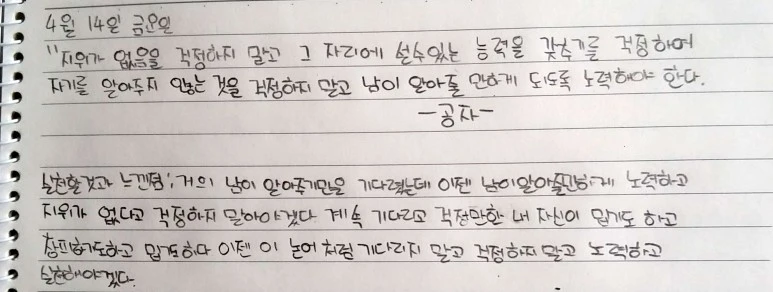 4월 14일 금요일
"지위가 없음을 걱정하지 말고 그 자리에 설수있는 능력을 갖추기를 걱정하여
자기를 알아주지 않는 것을 걱정하지 말고 남이 알아줄 만하게 되도록 노력해야 한다.
-공자-
실천할것과 느낀점; 거의 남이 알아주기만을 기다렸는데 이젠 남이알아줄만하게 노력하고
지위가 없다고 걱정하지 말아야겠다 계속 기다리고 걱정만한 내 자신이 밉기도 하고
창피하기도하고 밉기도하다 이젠 이 논어 처럼 기다리지 말고 걱정하지 말고 노력하고
실천해야겠다.